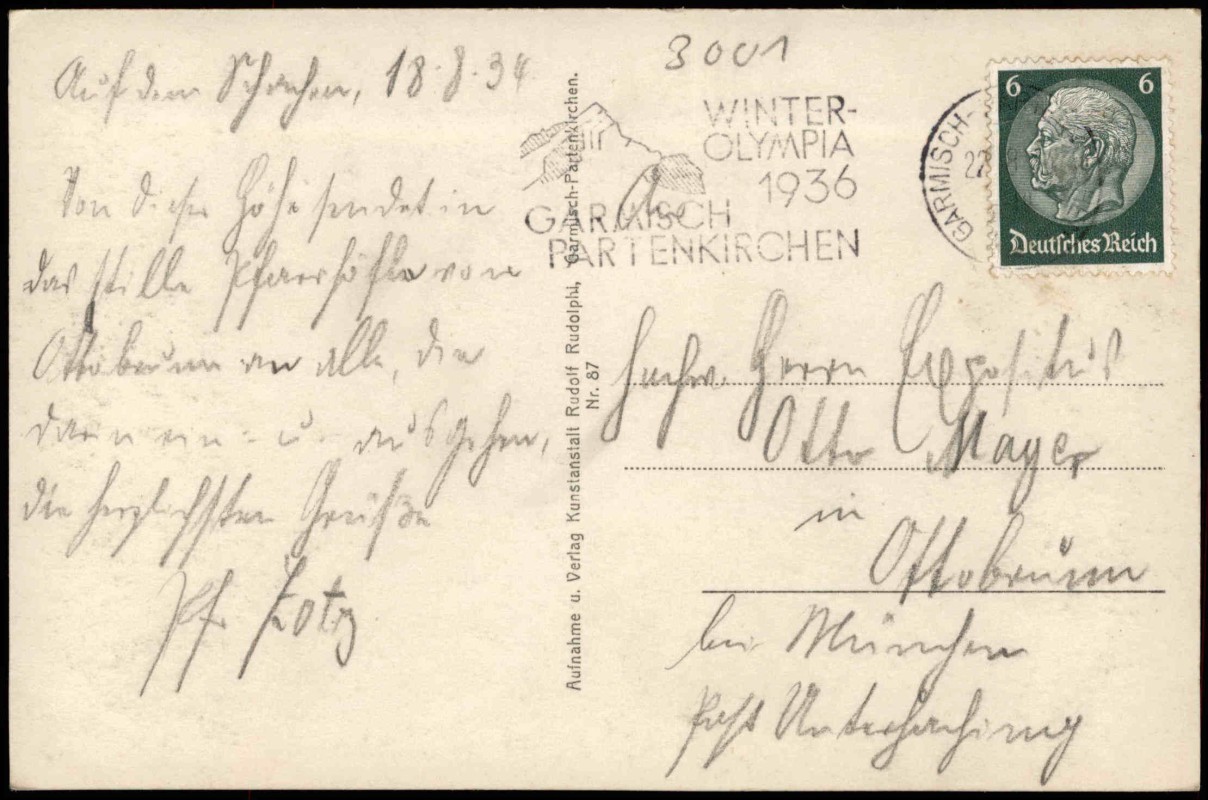 Auf dem Schachen, 18.8.34
Von dieser Höhe sendet in
das stille Pfarrhöfle von
Ottobrunn an alle, die
darin ein- u. ausgehen,
die herzlichsten Grüße
Pfr. Lotz
3001
WINTER-
OLYMPIA
1936
GARMISCH
PARTENKIRCHEN
GARMISCH-
6 6
Deutsches Reich
Aufnahme u. Verlag Kunstanstalt Rudolf Rudolphi, Garmisch-Partenkirchen.
Nr. 87
An
Hochw. Herrn Expositus
Otto Mayer
in
Ottobrunn
bei München
Post Unterhaching